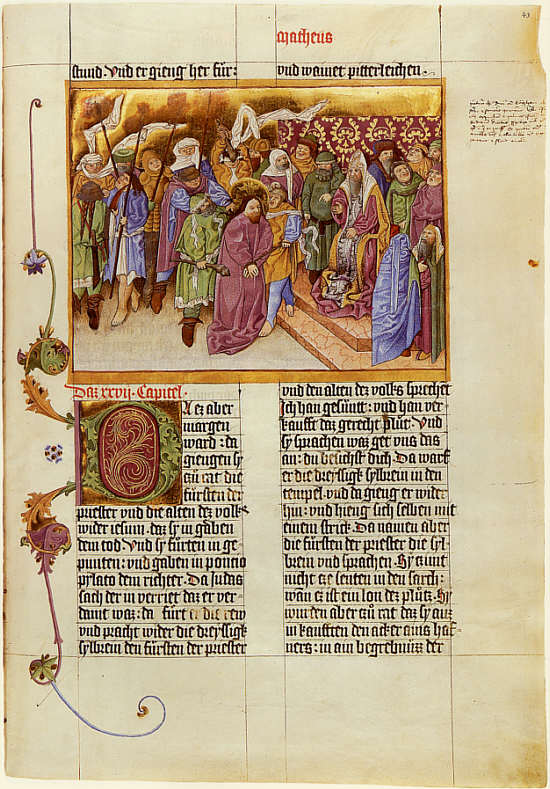 43
Matheus
stund: Vnd er gieng her für:
vnd wainet pitterleichen.
Daz xxvij. Capitel.
Da ez aber
margen
ward: da
giengen sy
czu rat die
fürsten der
priester vnd die alten dez volks
wider iesum: daz sy in gaben
dem tod: Vnd sy fürten in ge
punten: vnd gaben in poncio
pylato dem richter. Da Judas
sach der in verriet daz er ver
damt waz: da fürt er die rew
vnd pracht wider die dreyssigk
sylbrein den fürsten der priester
vnd den alten dez volks sprechet
Ich han gesüntt: vnd han ver
kaufft daz gerecht plut. Vnd
sy sprachen waz get vns das
an: du besichst dich. Da warf
er die dreyssigk sylbrein in den
tempel. vnd da gieng er wider
hin: vnd hieng sich selben mit
einem strick. Da namen aber
die fürsten der priester die syl
brein vnd sprachen. Sy czimt
nicht cze senten in den sarch:
wan ez ist ein lon dez plutz. Sy
wurden aber czu rat daz sy auz
in kaufften den acker ains haf
ners: in ain begrebnuzz der